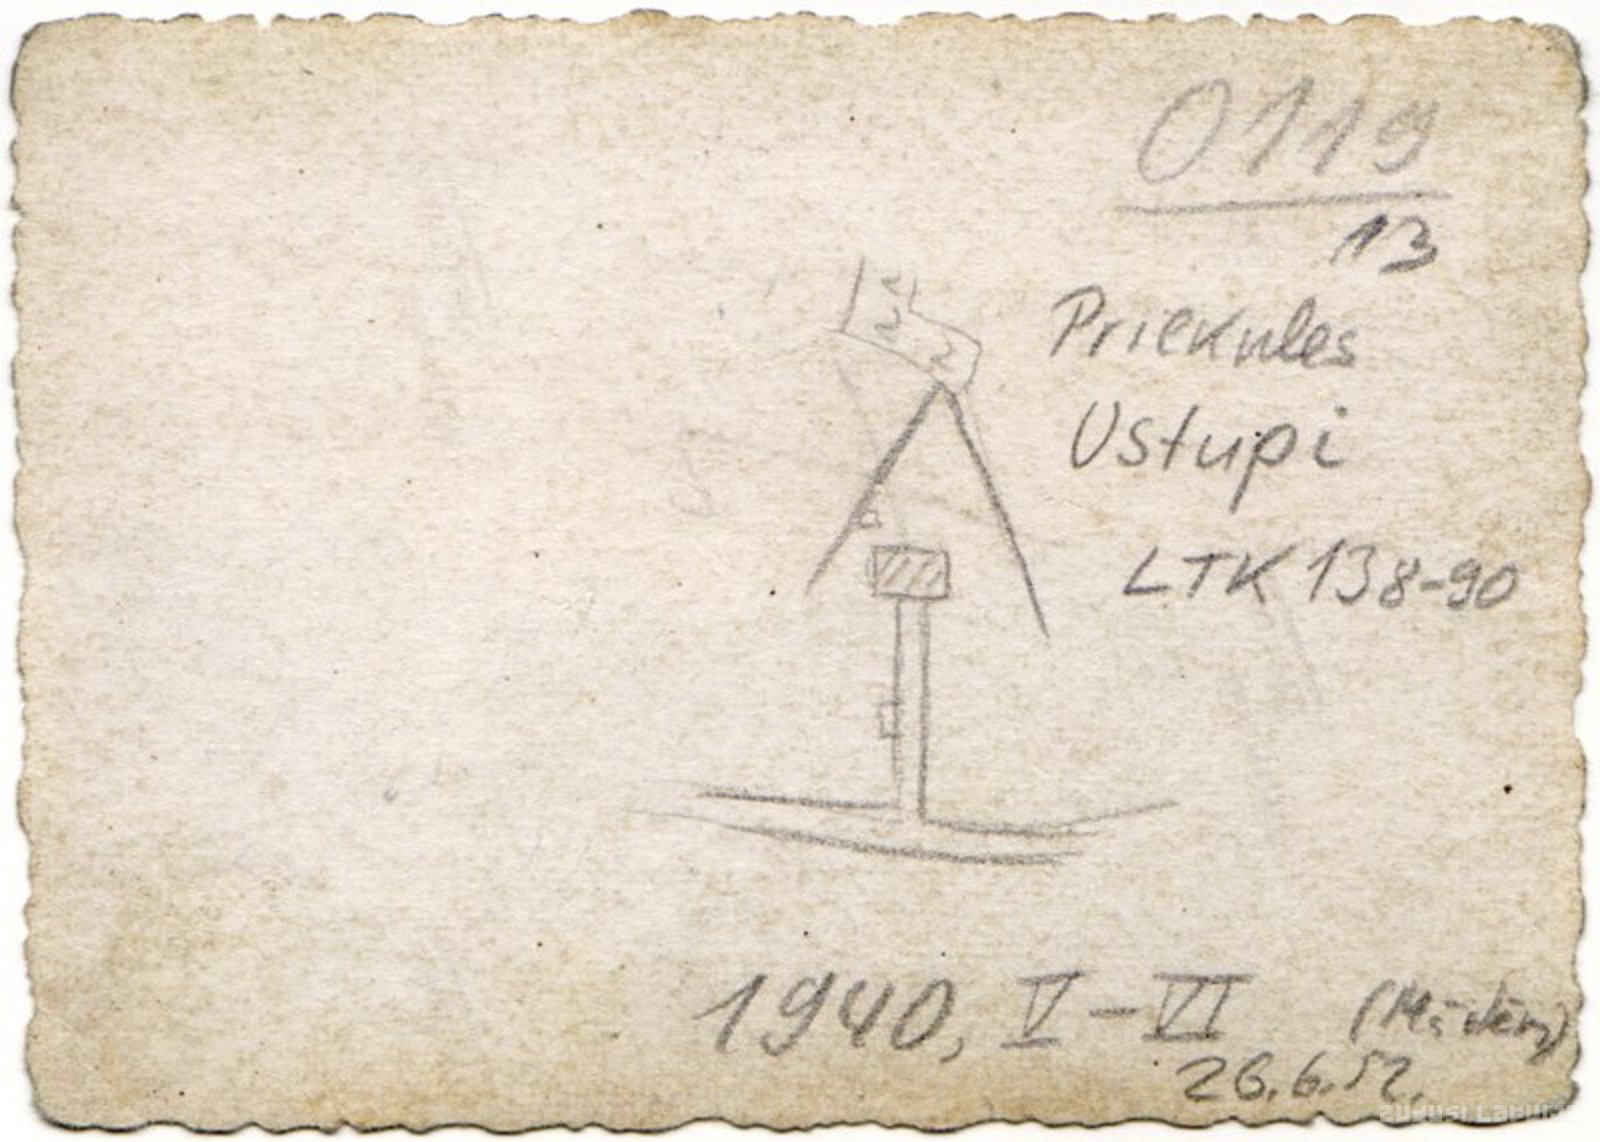 0119
13
Priekules
Ustupi
LTK 138-90
1940, V-VI
26.6.52.
ZUDUSI LATVIJA